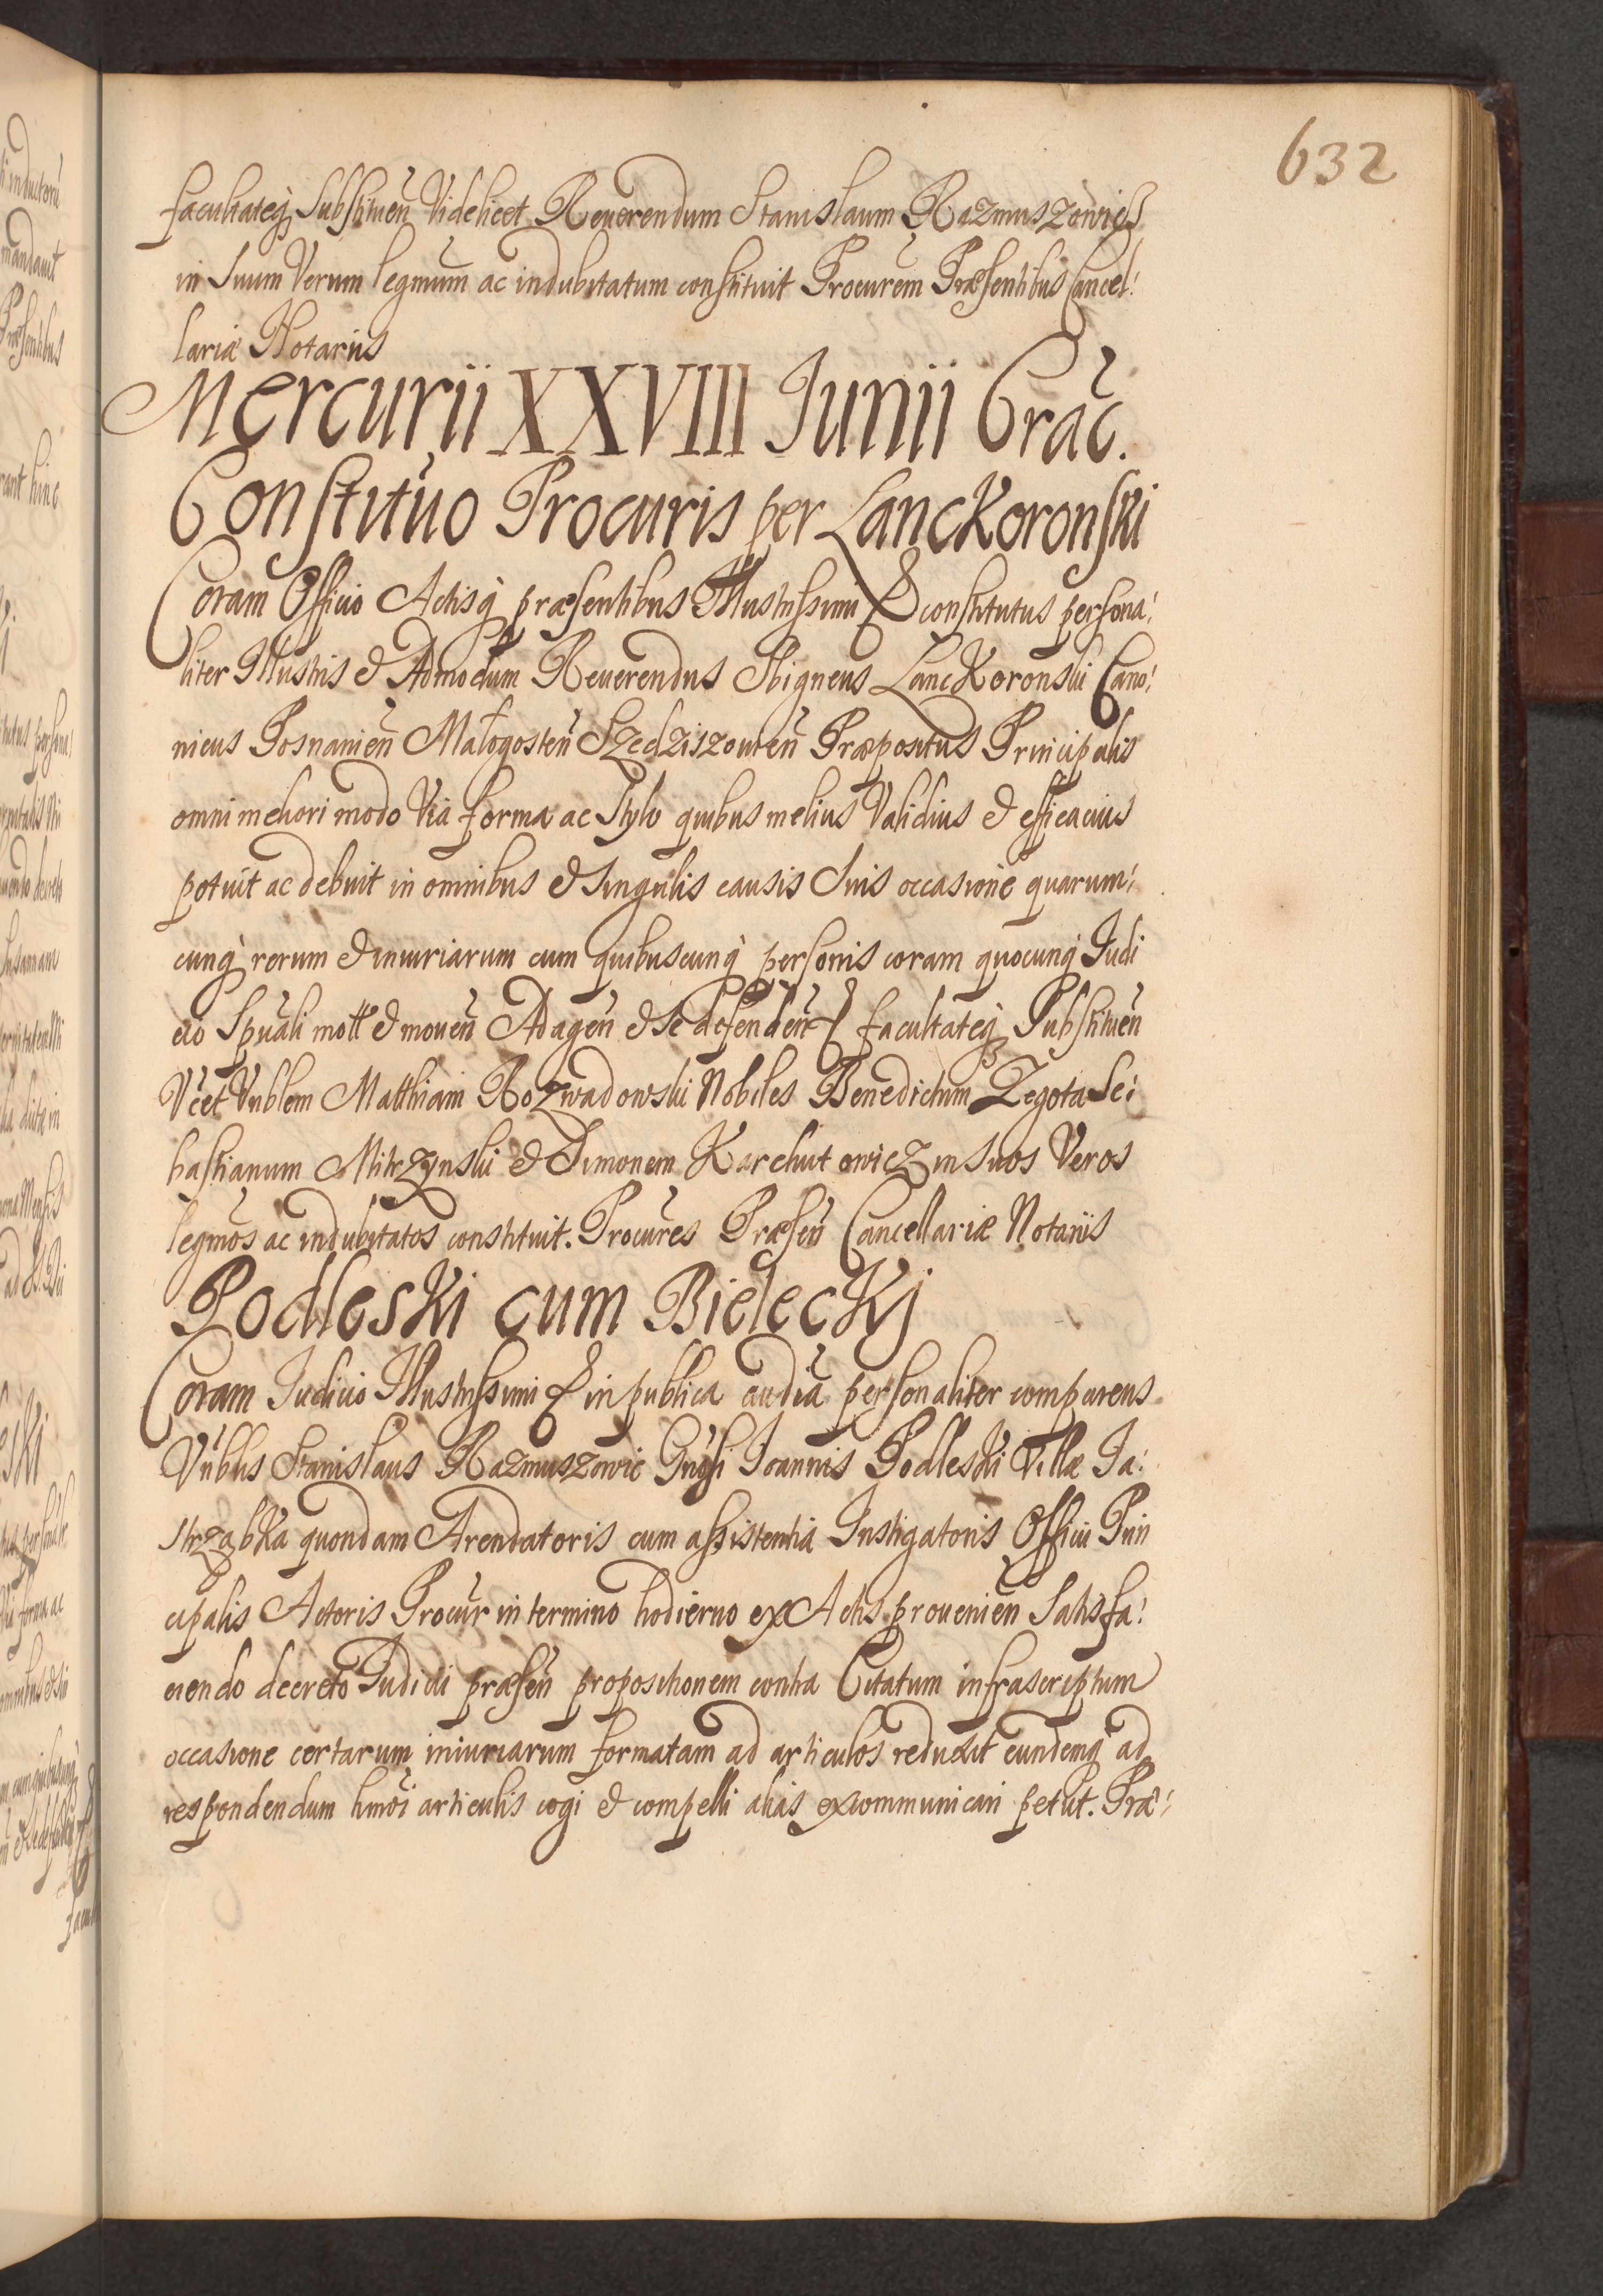 632
facultateq3 Substituen̄ Videlicet Reuerendum Stanislaum Razmuszowicz
in Suum Verum legm̄um ac indubitatum constituit Procurēm Præsentibus Cancel:
lariæ Notariis
Mercurii XXVIII Junii Crac̄.
Constitūo Procuris per Lanckoronski
Coram Officio Actisq̀ præsentibus Illustrissimi & constitutus persona:
liter Illustris & Admodum Reuerendus Sbigneus Lanckoronski Cano:
nicus Posnanien̄ Małogosten̄ Szedziszouien̄ Præpositus Principalis
omni meliori modo Via forma ac Stylo quibus melius Validius & efficacius
potuit ac debuit in omnibus & singulis causis Suis occasione quarum:
cunq̀ rerum & iniuriarum cum quibuscunq̀ personis coram quocunq̀ Judi
cio Spūali mott & mouen̄ Adagen̄ & se defenden̄ & facultateq3 Substituen̄
Vc̄et Vn̄blem Matthiam Rozwadowski Nobiles Benedictum Zegota Se:
bastianum Mitczynski & Simonem Karchutowicz in Suos Veros
legm̄os ac indubitatos constituit. Procūres Præsen̄ Cancellariæ Notariis
Podleski cum Bieleckj
Coram Judicio Illustrissimi & in publica audīa personaliter comparens
Vn̄blis Stanislaus Razmuszowic Gn̄osi Joannis Podleski Villæ Ja:
strząbka quondam Arendatoris cum assistentia Instigatoris Officii Prin
cipalis Actoris Procūr in termino hodierno ex Actis prouenien̄ Satisfa:
ciendo decreto Judicii præsen̄ propositionem contra Citatum infrascriptum
occasione certarum iniuriarum formatam ad articulos reduxit eundemq̀ ad
respondendum hm̄oi articulis cogi & compelli alias excommunicari petiit. Præ: